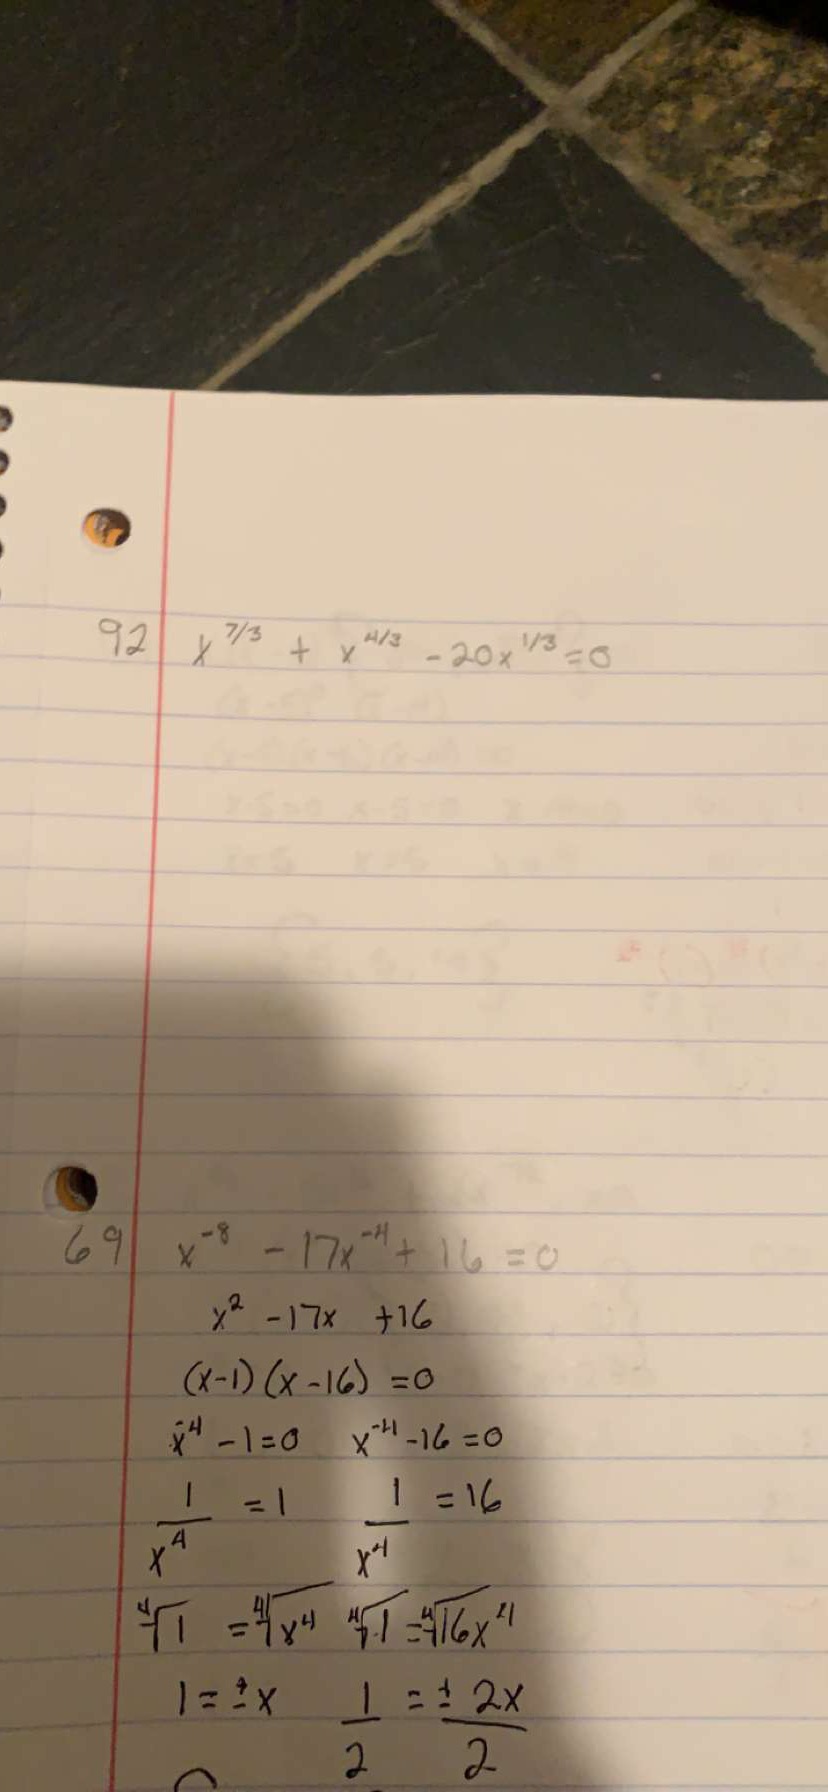 92 x^7/3 + x^4/3 - 20x^1/3 = 0
69 x^-8 - 17x^-4 + 16 = 0
x^2 - 17x + 16
(x-1) (x-16) = 0
x^-4 - 1 = 0 x^-4 - 16 = 0
1/x^4 = 1 1/x^4 = 16
∜1 = ∜x^4 ∜1 = ∜16x^4
1 = ±x 1/2 = ± 2x/2